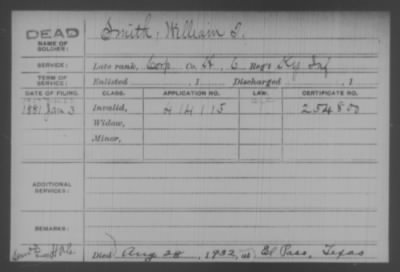 DEAD
NAME OF SOLDIER: Smith, William T.
SERVICE: Late rank, Corp Co. H, 6 Reg't Ky Inf
TERM OF SERVICE: Enlisted , 1 Discharged , 1
DATE OF FILING. CLASS. APPLICATION NO. LAW. CERTIFICATE NO.
1881 Jan 3 Invalid, 414115 254850
Widow,
Minor,
ADDITIONAL SERVICES:
REMARKS:
Died Aug 28, 1932, at El Paso, Texas